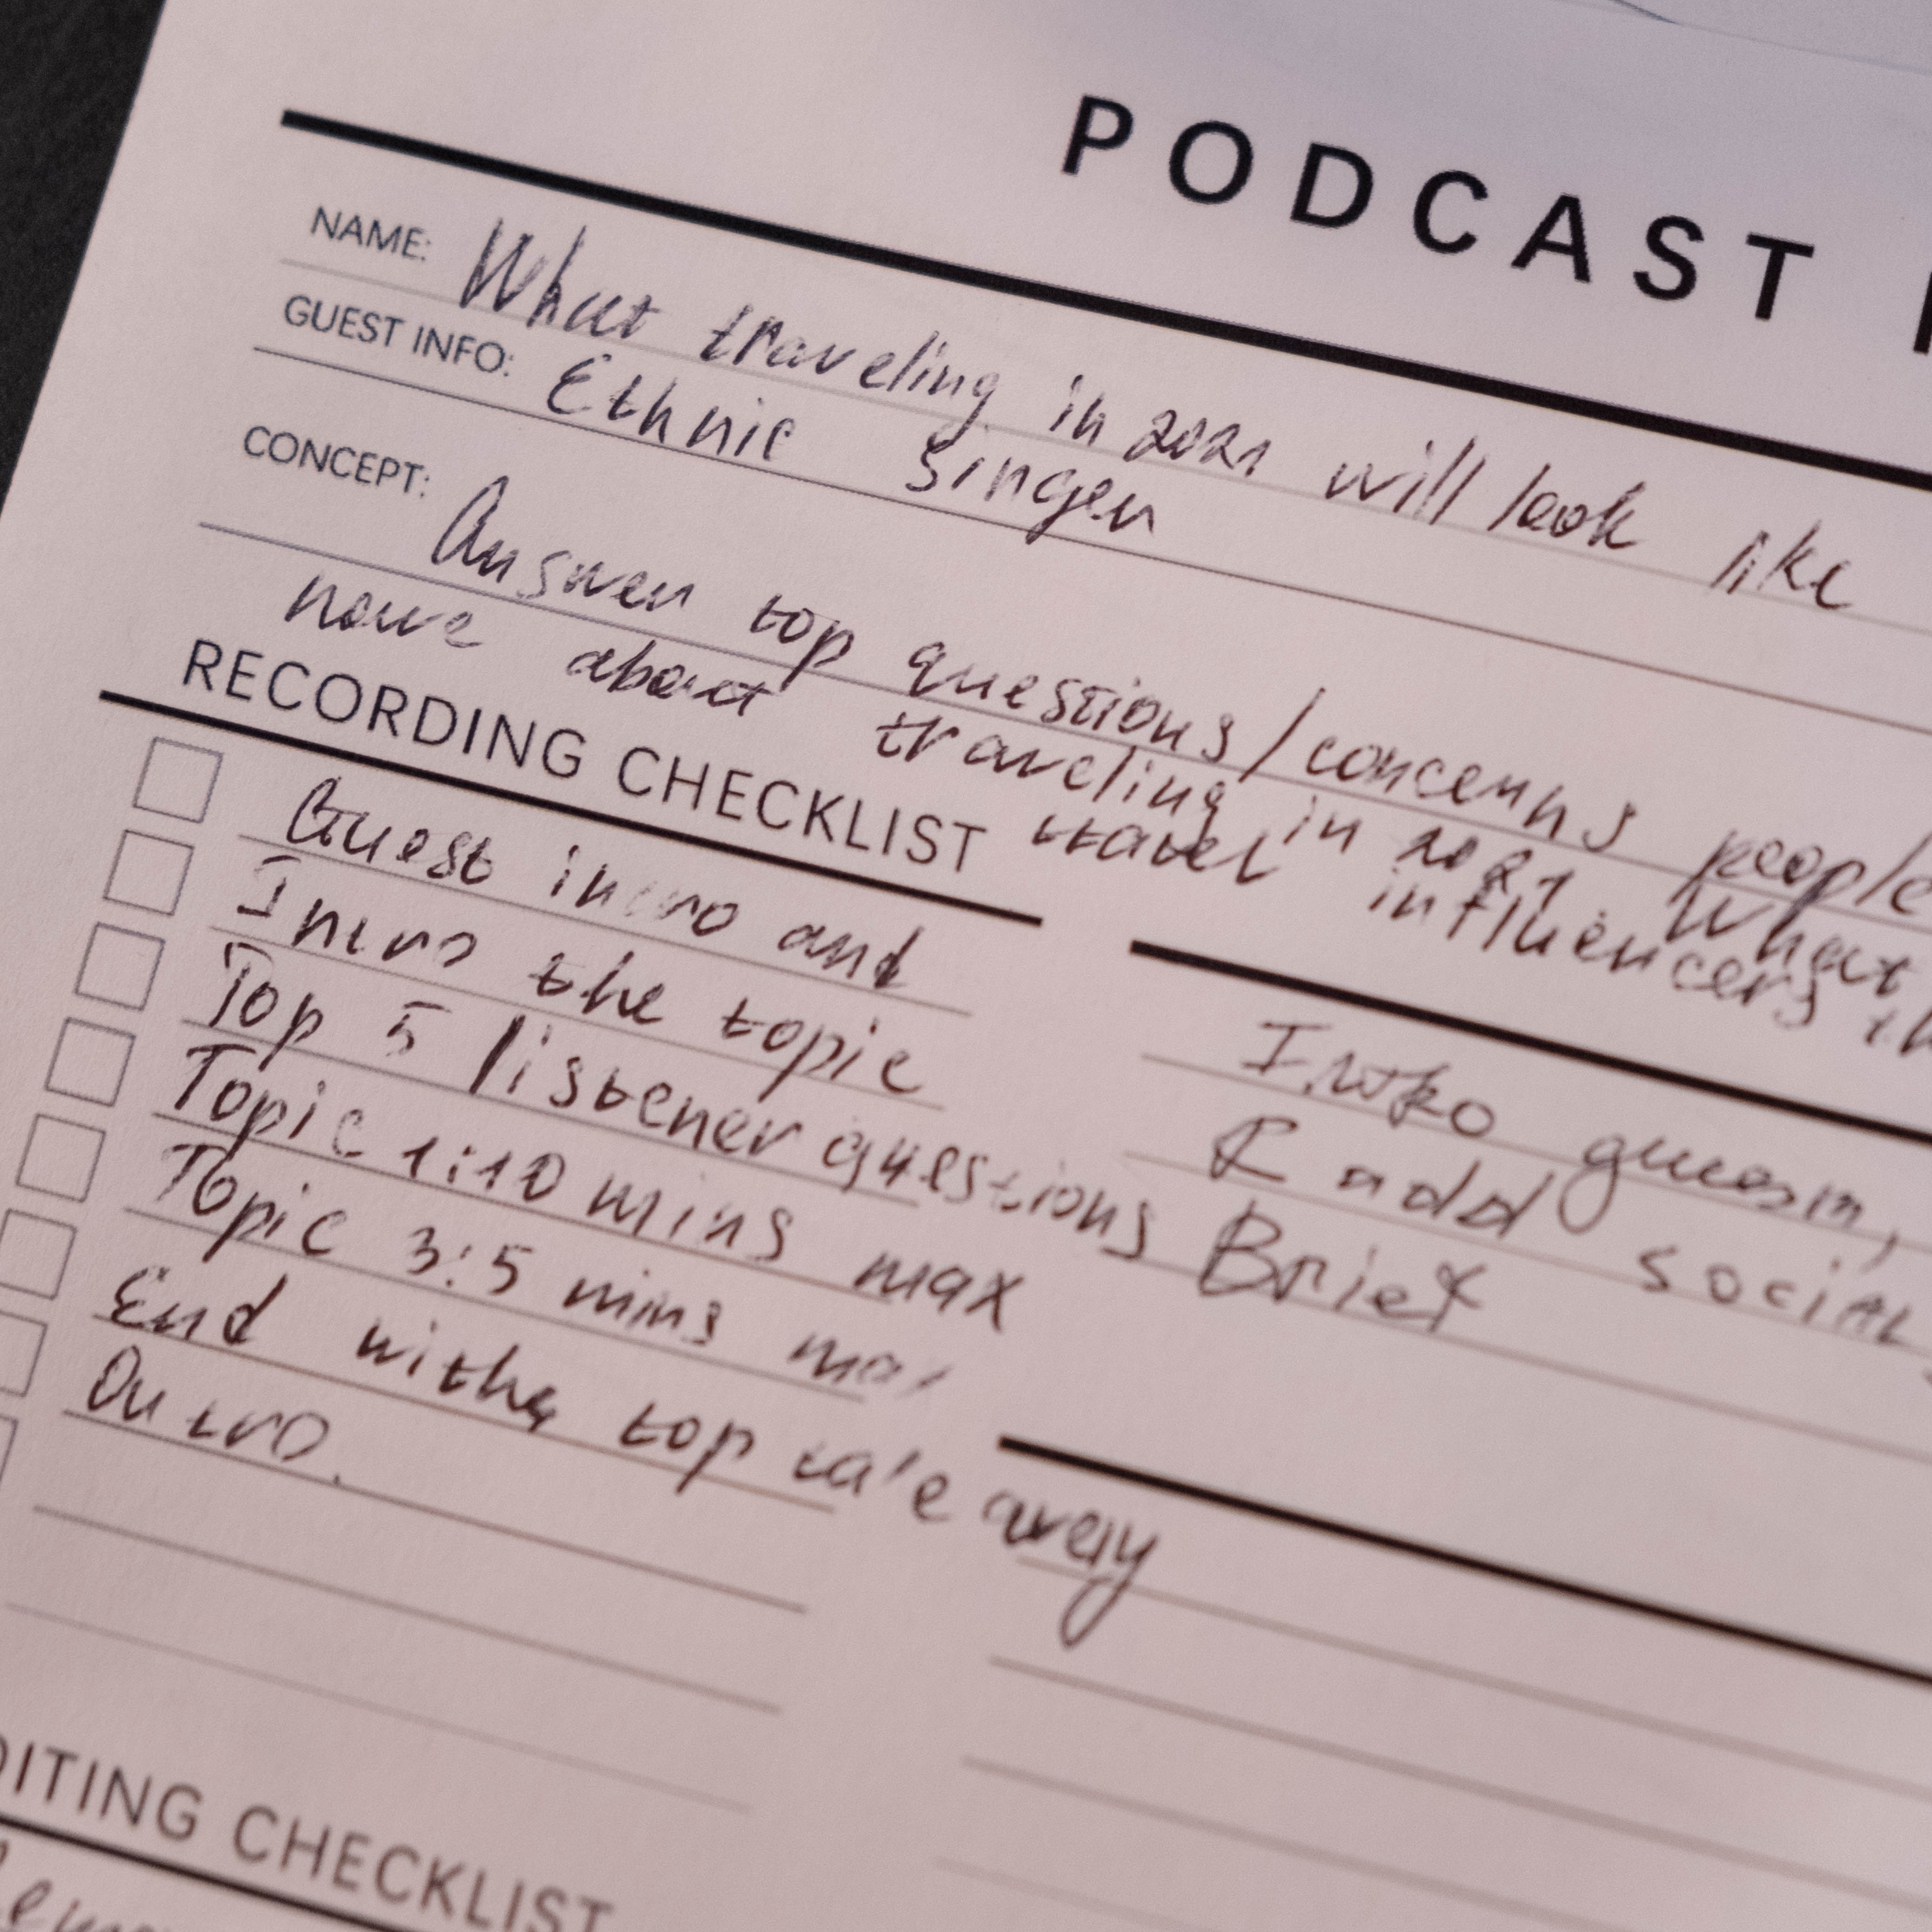 PODCAST
NAME: What traveling in 2021 will look like
GUEST INFO: Ethnic Singer
CONCEPT: Answer top questions/concerns people
about traveling in 2021 What
travel influencers
RECORDING CHECKLIST
Guest intro and
Intro the topic
Top 5 listener questions
Topic 1:10 mins max
Topic 3:5 mins max
End with top away
Outro.
Intro
add social
Brief
DITING CHECKLIST